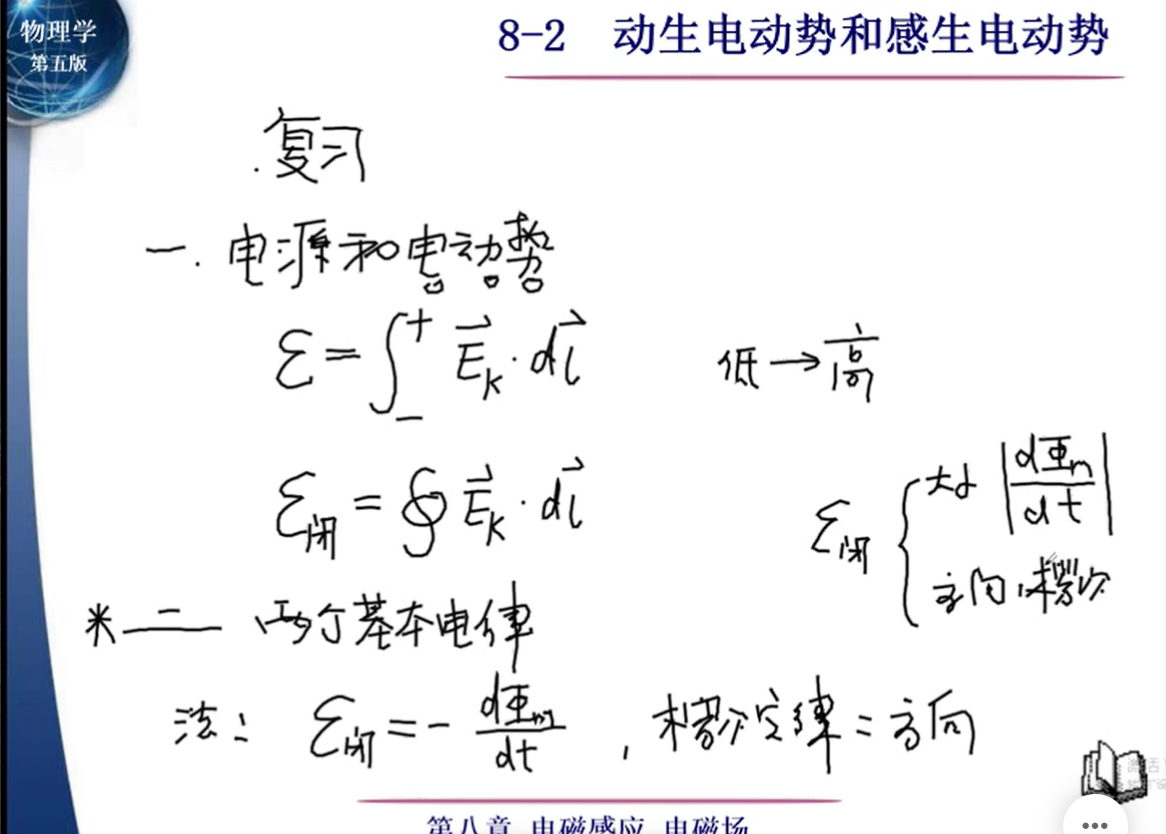 物理学
第五版
8-2 动生电动势和感生电动势
.复习
一.电源和电动势
ε=∫₋⁺ E⃗ₖ·dl⃗
低→高
ε闭=∮E⃗ₖ·dl⃗
ε闭{大小 |dΦm/dt|
方向:楞次
米二 两个基本电律
法: ε闭=-dΦm/dt , 楞次定律:方向
第八章 电磁感应 电磁场